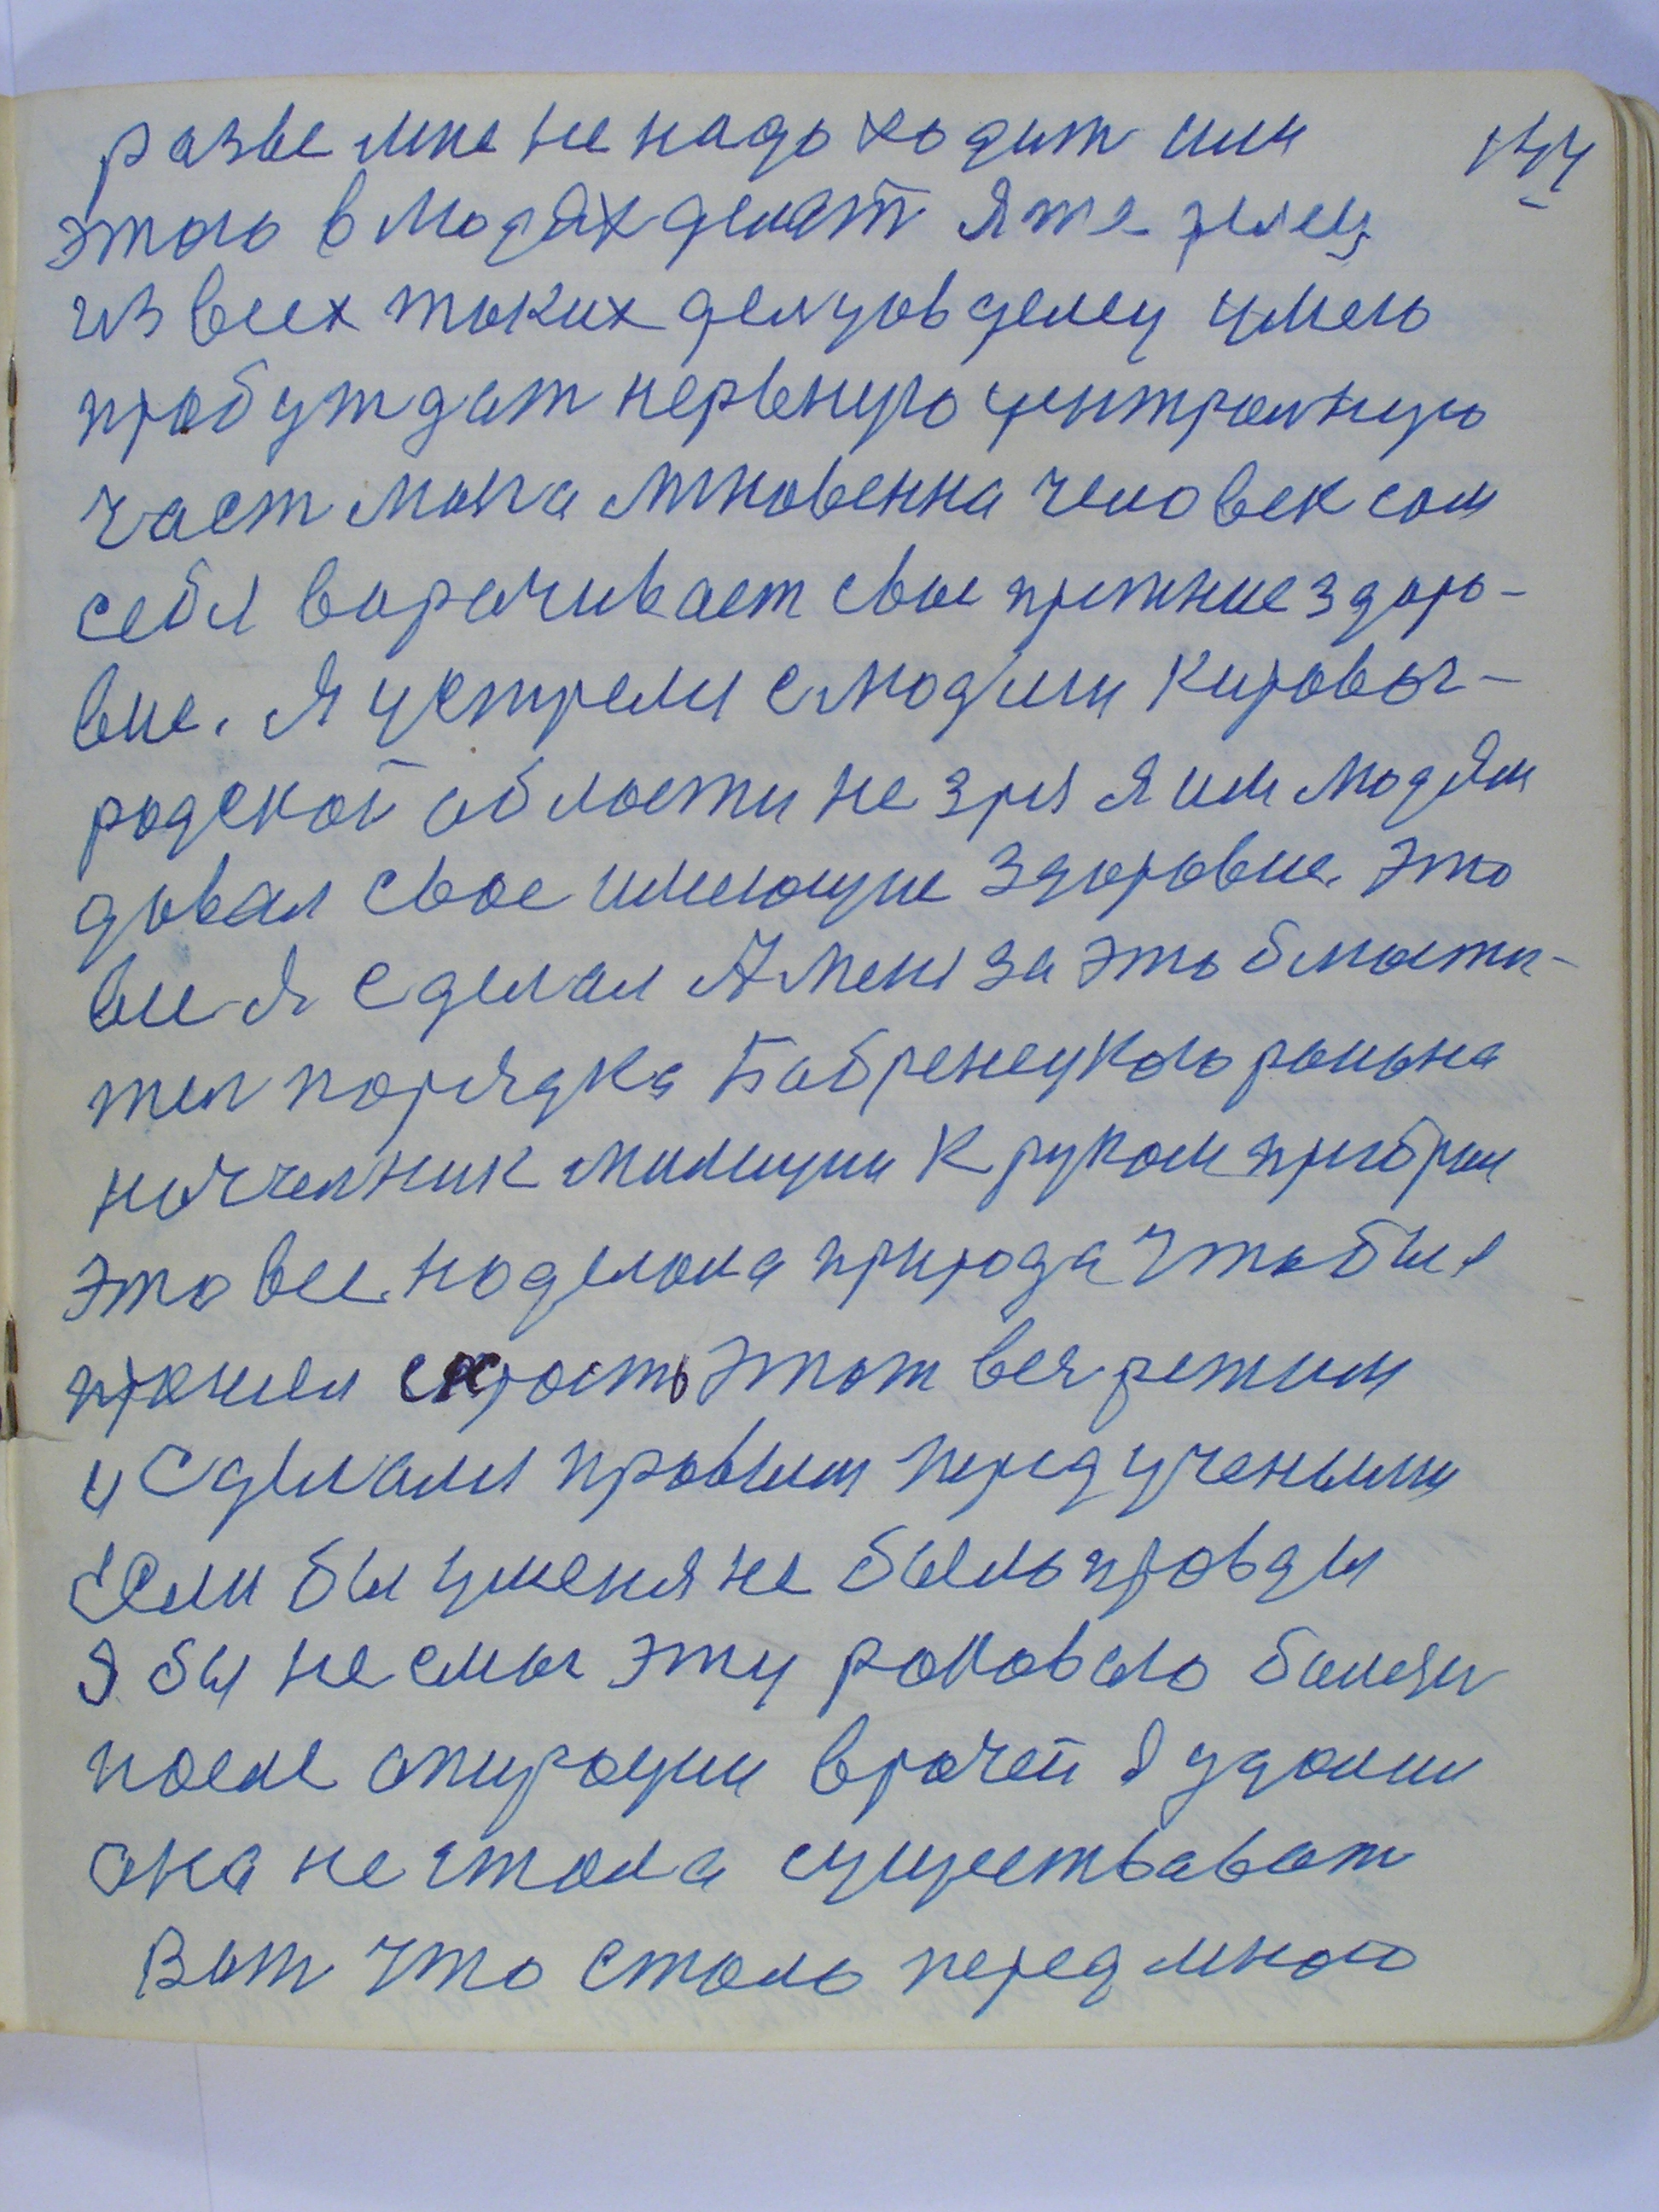 144
разве мне не надо ходит или
этого в людях делат Я же делец
из всех таких делцов делец умею
пробуждат нервную централную
част мозга мгновенна человек сам
себя ворачивает свое прежние здоро-
вие. Я устрелся с людми Кировог-
родской области не зря я им людям
довал свое имеющие здоровие. Это
все я сделал А меня за это блюсти-
тел порядка Бобренецкого раиона
началник милиции к рукам прибрал
Это все наделала природа чтобы я
прошел скрость этот весь режим
и сделался правым перед учеными
Если бы уменя не было правды
Я бы не смог эту раковую болезн
после операции врачей я удалил
она не стала существоват
Вот что стало перед мною